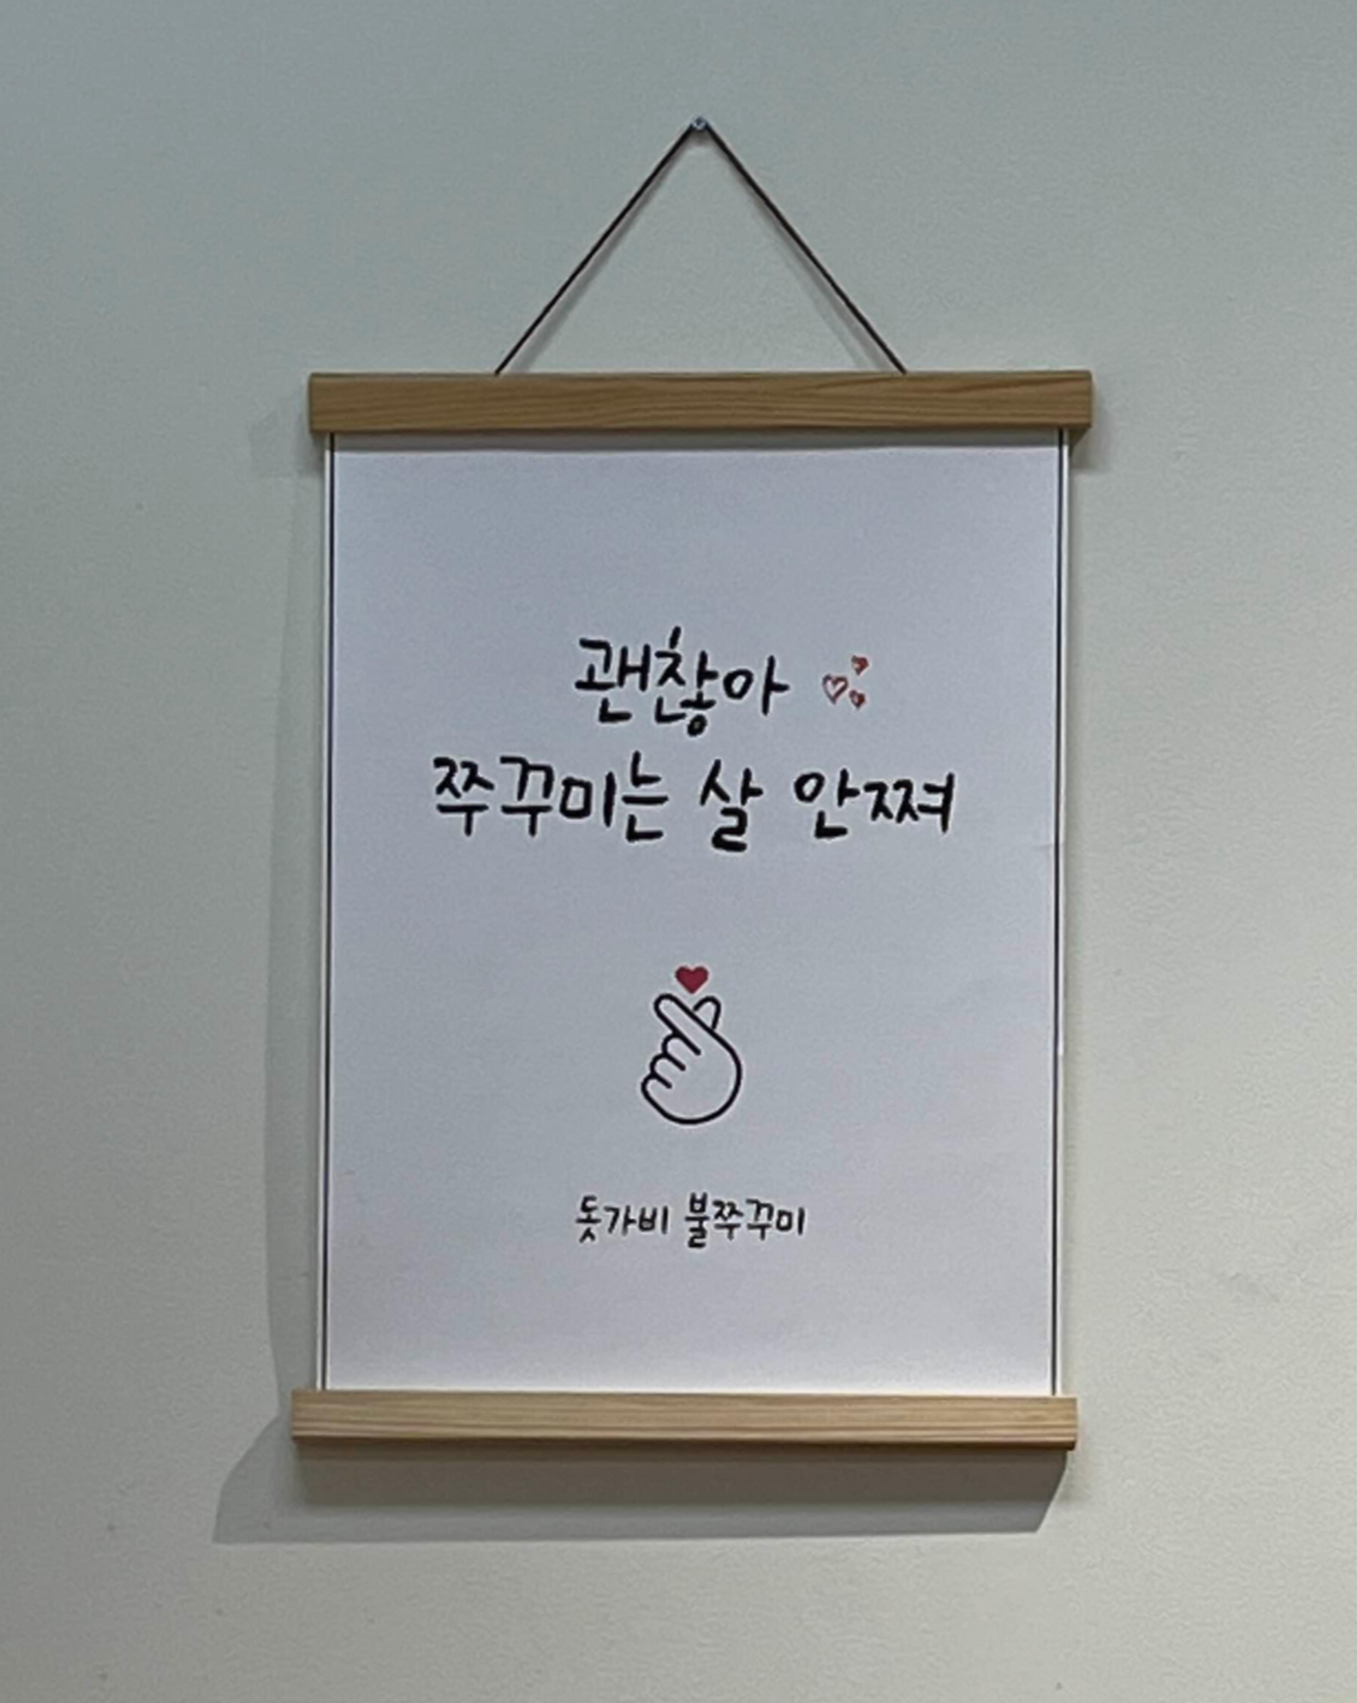 괜찮아
쭈꾸미는 살 안쪄
돗가비 불쭈꾸미